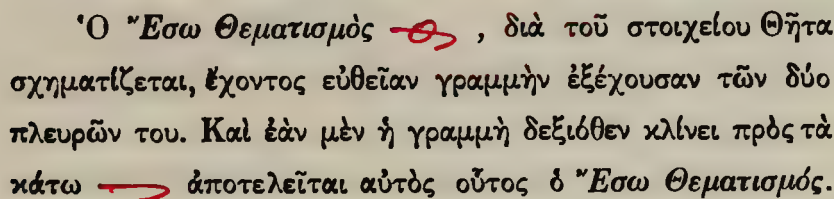 Ὁ Ἔσω Θεματισμὸς , διὰ τοῦ στοιχείου Θῆτα
σχηματίζεται, ἔχοντος εὐθεῖαν γραμμὴν ἐξέχουσαν τῶν δύο
πλευρῶν του. Καὶ ἐὰν μὲν ἡ γραμμὴ δεξιόθεν κλίνει πρὸς τὰ
κάτω ἀποτελεῖται αὐτὸς οὗτος ὁ Ἔσω Θεματισμός.